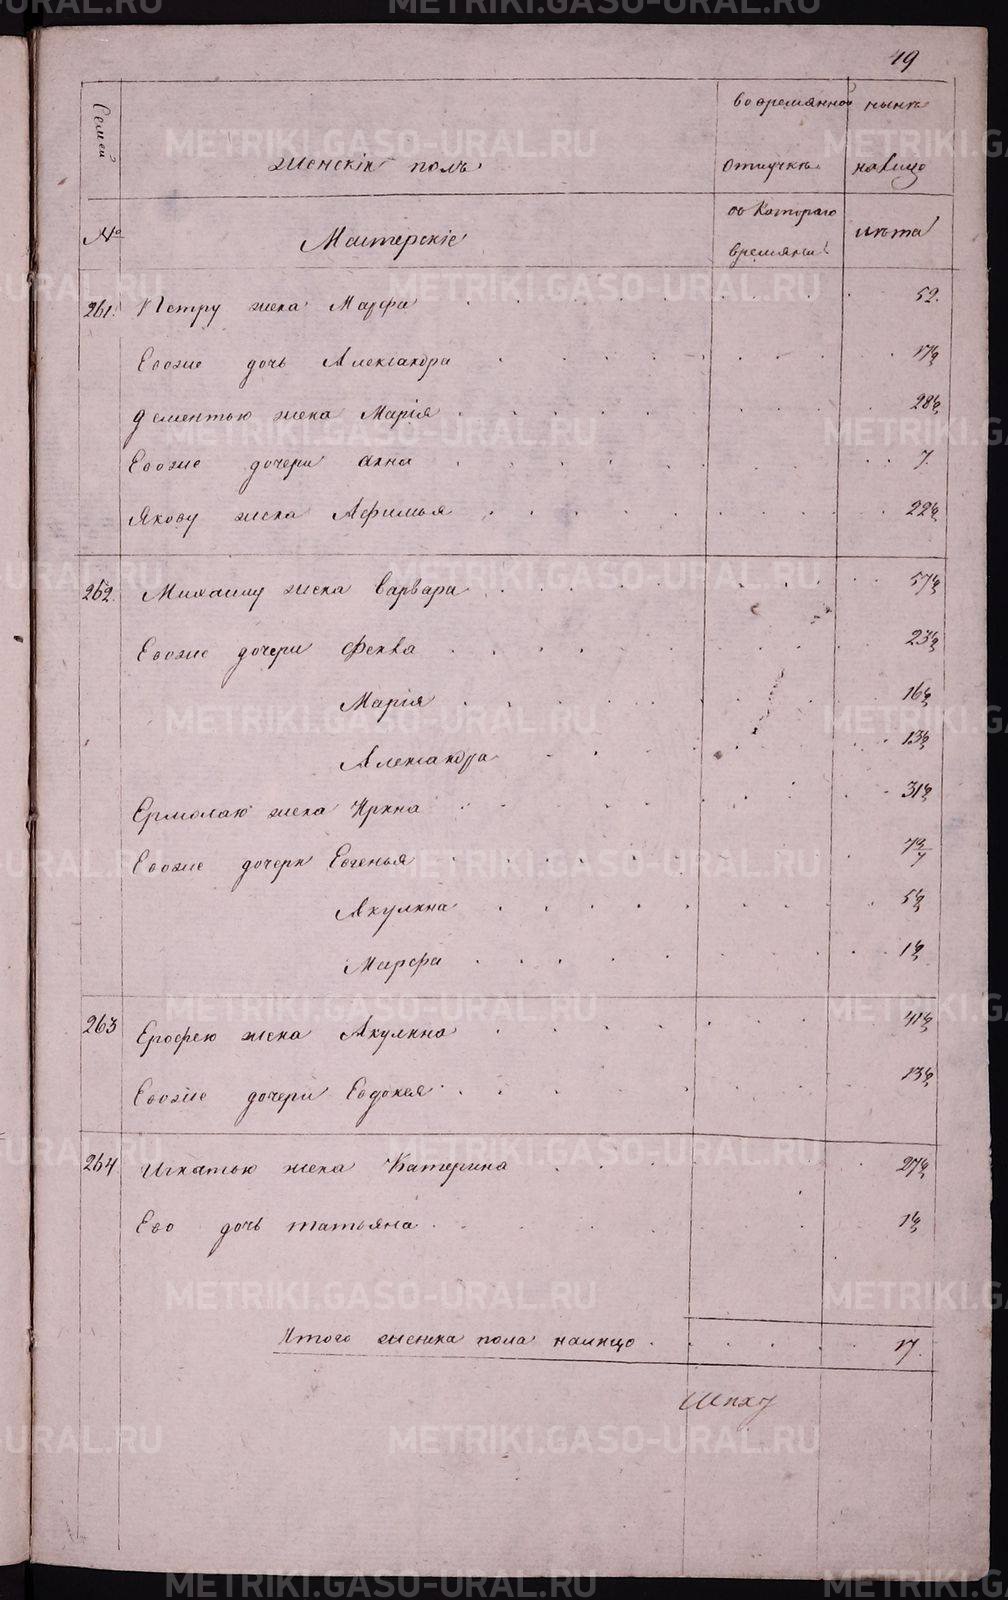 49
Семей
женскiй полъ
во временной
отлучке
ныне
налицо
№
Мастерскiе
со Котораго
времяни
лета
261. Петру жена Марфа 52.
Евоже дочь Александра 17½
дементью жена Марiя 28½
Евоже дочери анна 7.
Якову жена Афимья 22½
262. Михаилу жена варвара 57½
Евоже дочери Фекла 23½
Марiя 16½
Александра 13½
Ермолаю жена Ирина 31½
Евоже дочери Евгенья
Акулина 5½
Марфа 1½
263 Ерофею жена Акулина 41½
Евоже дочери Евдокея 13½
264 Игнатью жена Катерина 27½
Ево дочь татьяна 1½
Итого женска пола налицо 17.
METRIKI.GASO-URAL.RU